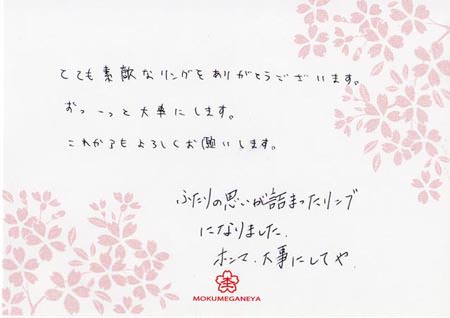 とても素敵なリングをありがとうございます。
ずっーっと大事にします。
これからもよろしくお願いします。
ふたりの思いが詰まったリング
になりました。
ホンマ、大事にしてや。
MOKUMEGANEYA